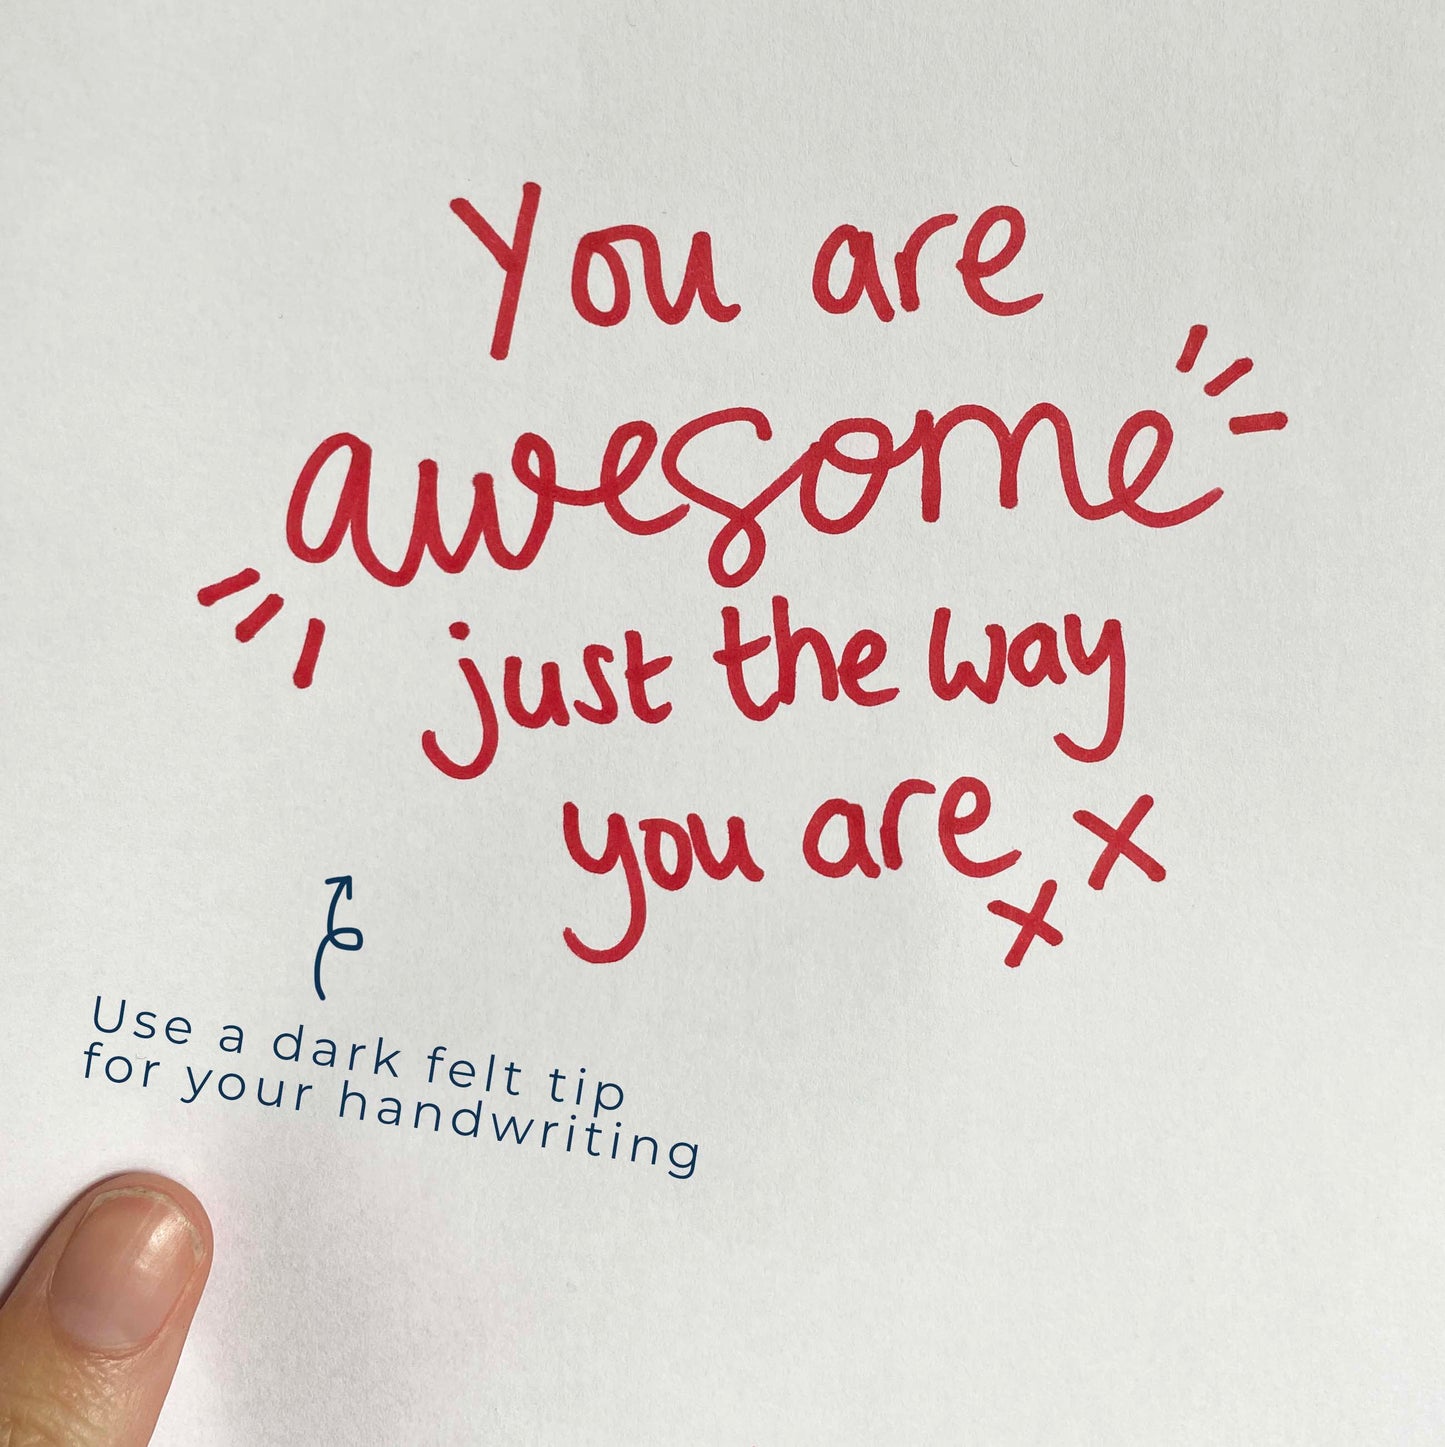 You are
awesome
just the way
you are x
x
Use a dark felt tip
for your handwriting